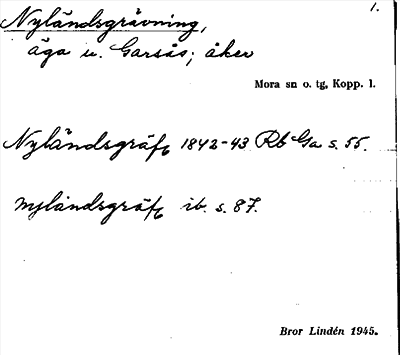 1.
Nyländsgrävning,
äga u. Garsås; åker
Mora sn o. tg, Kopp. l.
Nyländsgräfg 1842-43 Rb Ga s. 55.
nyländsgräfg ib. s. 87.
Bror Lindén 1945.